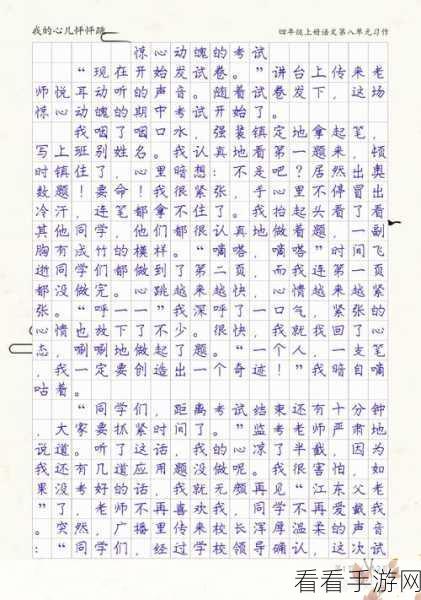 我的心儿怦怦跳
四年级上册语文第八单元习作
惊心动魄的考试
“现在开始发试卷。”讲台上传来老
师悦耳动听的声音。随着试卷发下，这场
惊心动魄的期中考试开始了。
我咽了咽口水，强装镇定地拿起笔，
写上班别姓名。我认真地看第一题来，顿
时镇住了，心里暗想：不是吧？居然出奥
数题！要命！我很紧张，手心里不停冒出
冷汗，连笔都拿不住了。我抬起头看了看
其他同学，他们都很认真地做着题，一副
胸有成竹的模样。“嘀嗒，嘀嗒”时间飞
逝同学们都做到了第二页，而我连第一页
都没做完。心跳越来越快，心情越来越紧
张。“呼——”我深呼了一口气，紧张的
心愤也放下了不少。很快，我就找回了心
态，唰唰地做起了题。“一个人，一支笔
，我一定要创造出一个奇迹！”我暗自嘀
咕着。
“同学们，距离考试结束还有十分钟
，大家要抓紧时间了。”监考老师严肃地
说道。听了这话，我的心凉了半截，因为
我还有几道应用题没做呢。我很害怕，如
果没考好的话，我就无颜再见“江东父老
”了，老师不再喜欢我，同学不再爱戴我
。突然，广播里传来校长浑厚温柔的声音
：“同学们，经过学校领导确认，这次试
看看手游网